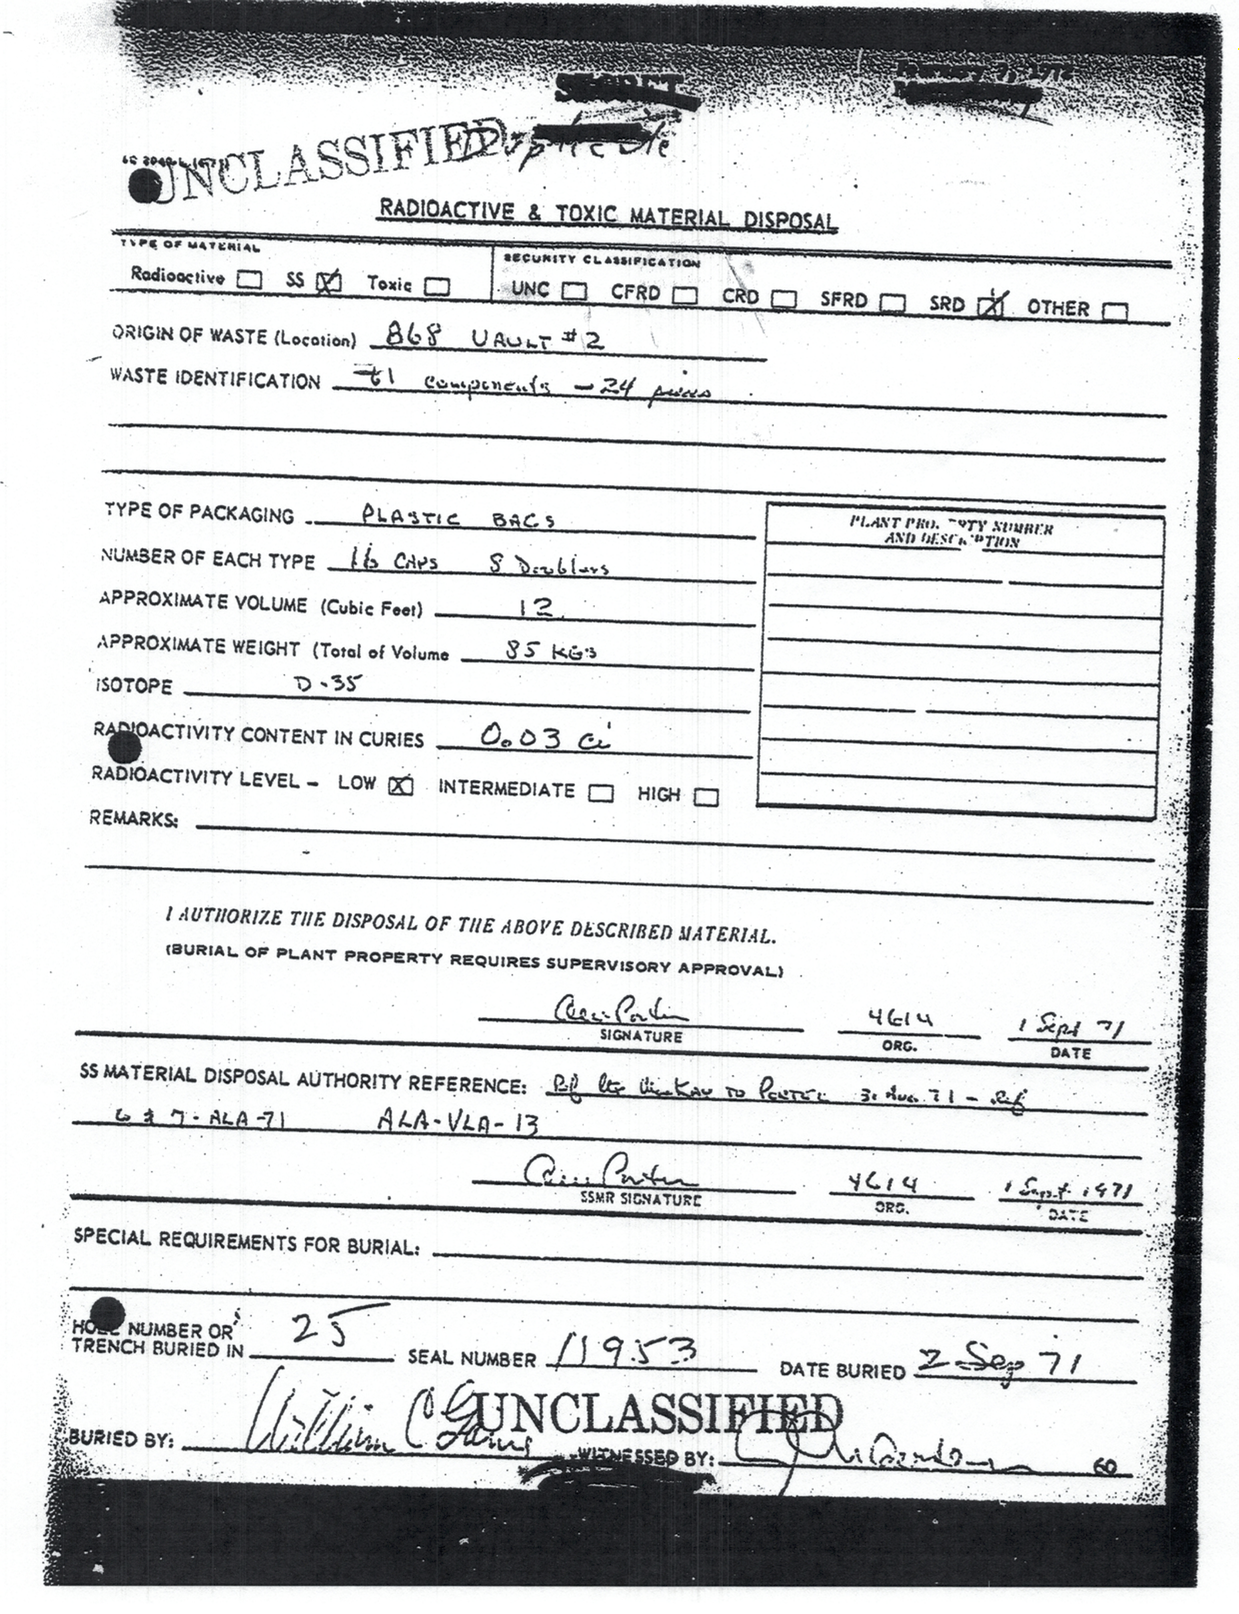 UNCLASSIFIED
RADIOACTIVE & TOXIC MATERIAL DISPOSAL
TYPE OF MATERIAL
Radioactive SS Toxic
SECURITY CLASSIFICATION
UNC CFRD CRD SFRD SRD OTHER
ORIGIN OF WASTE (Location) 868 VAULT #2
WASTE IDENTIFICATION components - 24
TYPE OF PACKAGING PLASTIC BAGS
NUMBER OF EACH TYPE 16 CAPS 8 Doublers
APPROXIMATE VOLUME (Cubic Feet) 12
APPROXIMATE WEIGHT (Total of Volume 85 KGS
ISOTOPE D-35
RADIOACTIVITY CONTENT IN CURIES 0.03 ci
RADIOACTIVITY LEVEL - LOW INTERMEDIATE HIGH
REMARKS:
PLANT NUMBER
AND
I AUTHORIZE THE DISPOSAL OF THE ABOVE DESCRIBED MATERIAL.
(BURIAL OF PLANT PROPERTY REQUIRES SUPERVISORY APPROVAL)
4614 1 Sept 71
SIGNATURE ORG. DATE
SS MATERIAL DISPOSAL AUTHORITY REFERENCE: TO 71
6 & 7-ALA-71 ALA-VLA-13
4614 1 Sept 1971
SSMR SIGNATURE ORG. DATE
SPECIAL REQUIREMENTS FOR BURIAL:
HOLE NUMBER OR
TRENCH BURIED IN 25 SEAL NUMBER 11953 DATE BURIED 2 Sep 71
UNCLASSIFIED
BURIED BY: William C WITNESSED BY:
60